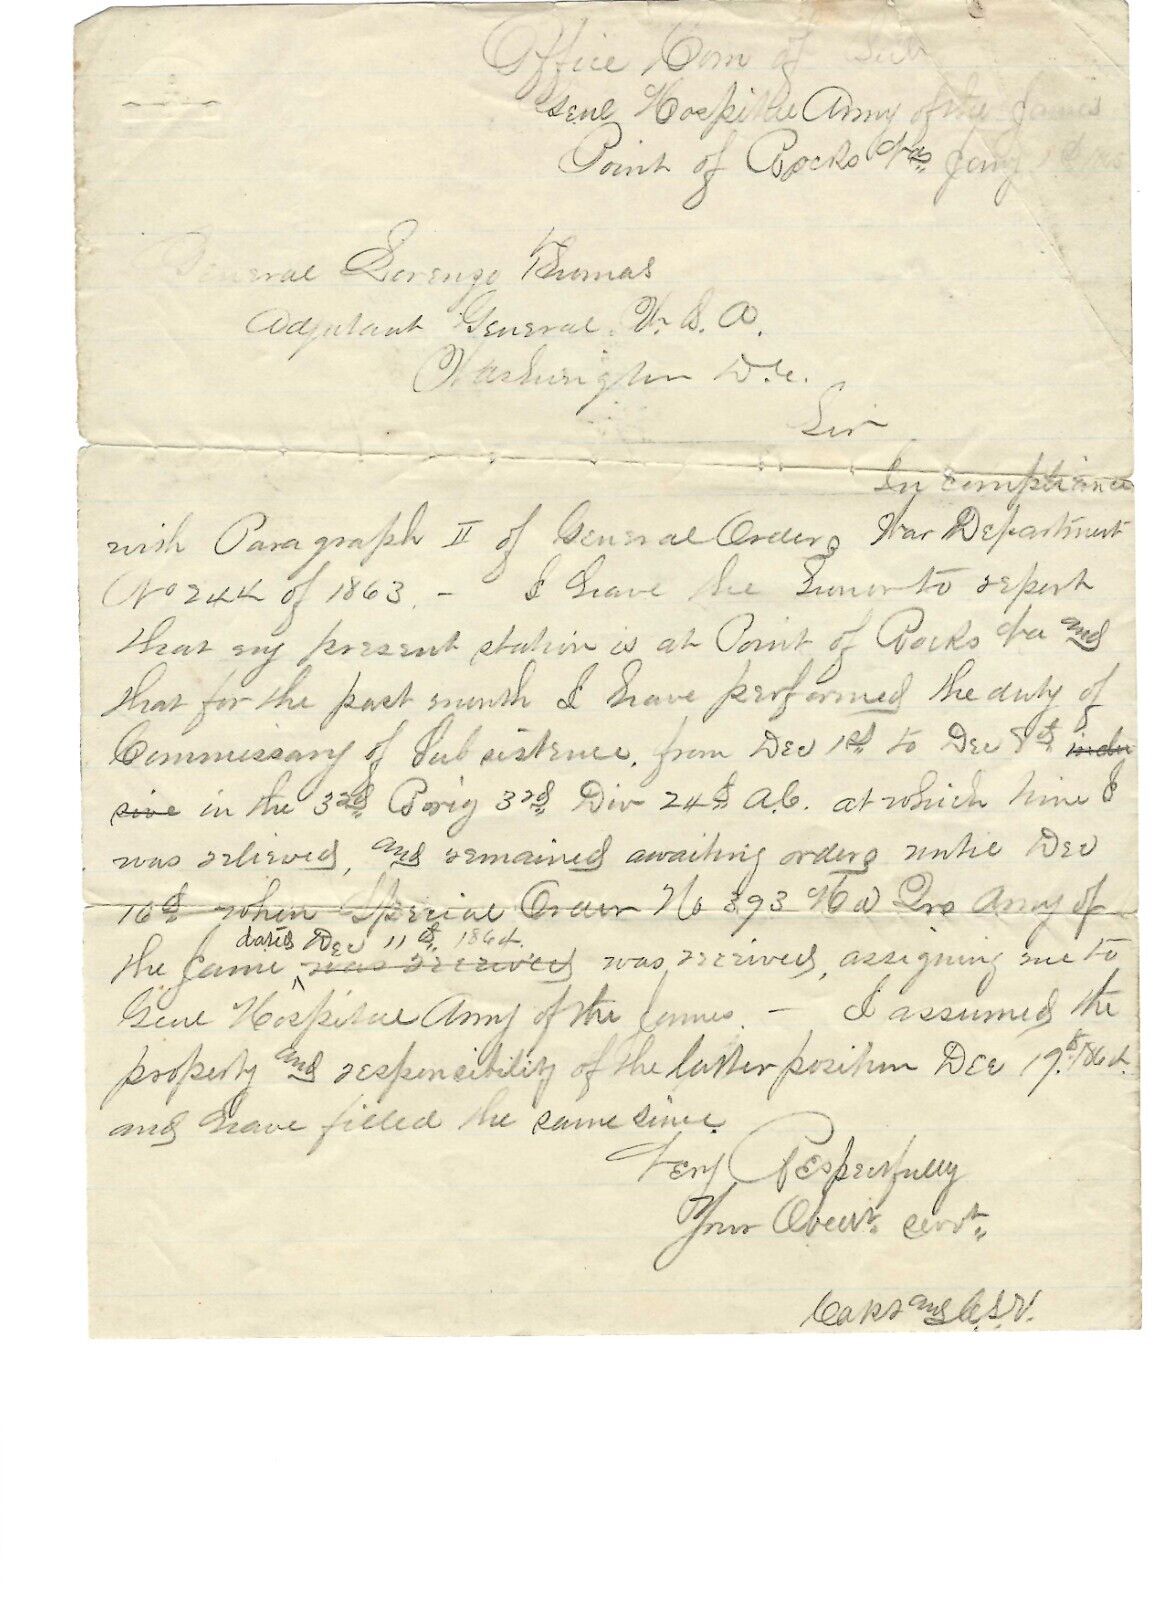 Office Com of Sub
Genl Hospital Army of the James
Point of Rocks Va Jany
General Lorenzo Thomas
Adjutant General U. S. A.
Washington D.C.
Sir
In compliance
with Paragraph II of General Orders War Department
No 244 of 1863. - I have the honor to report
that my present station is at Point of Rocks Va and
that for the past month I have performed the duty of
Commissary of Subsistence, from Dec 1st to Dec 8th inclu
sive in the 3rd Brig 3rd Div 24th A.C. at which time I
was relieved, and remained awaiting orders until Dec
16th when Special Order No 393 Hd Qrs Army of
dated Dec 11th, 1864.
the James was received was received, assigning me to
Genl Hospital Army of the James. - I assumed the
property and responsibility of the latter position Dec 19th 1864.
and have filled the same since.
Very Respectfully
Your Obedt. servt.
Capt and C.S.V.